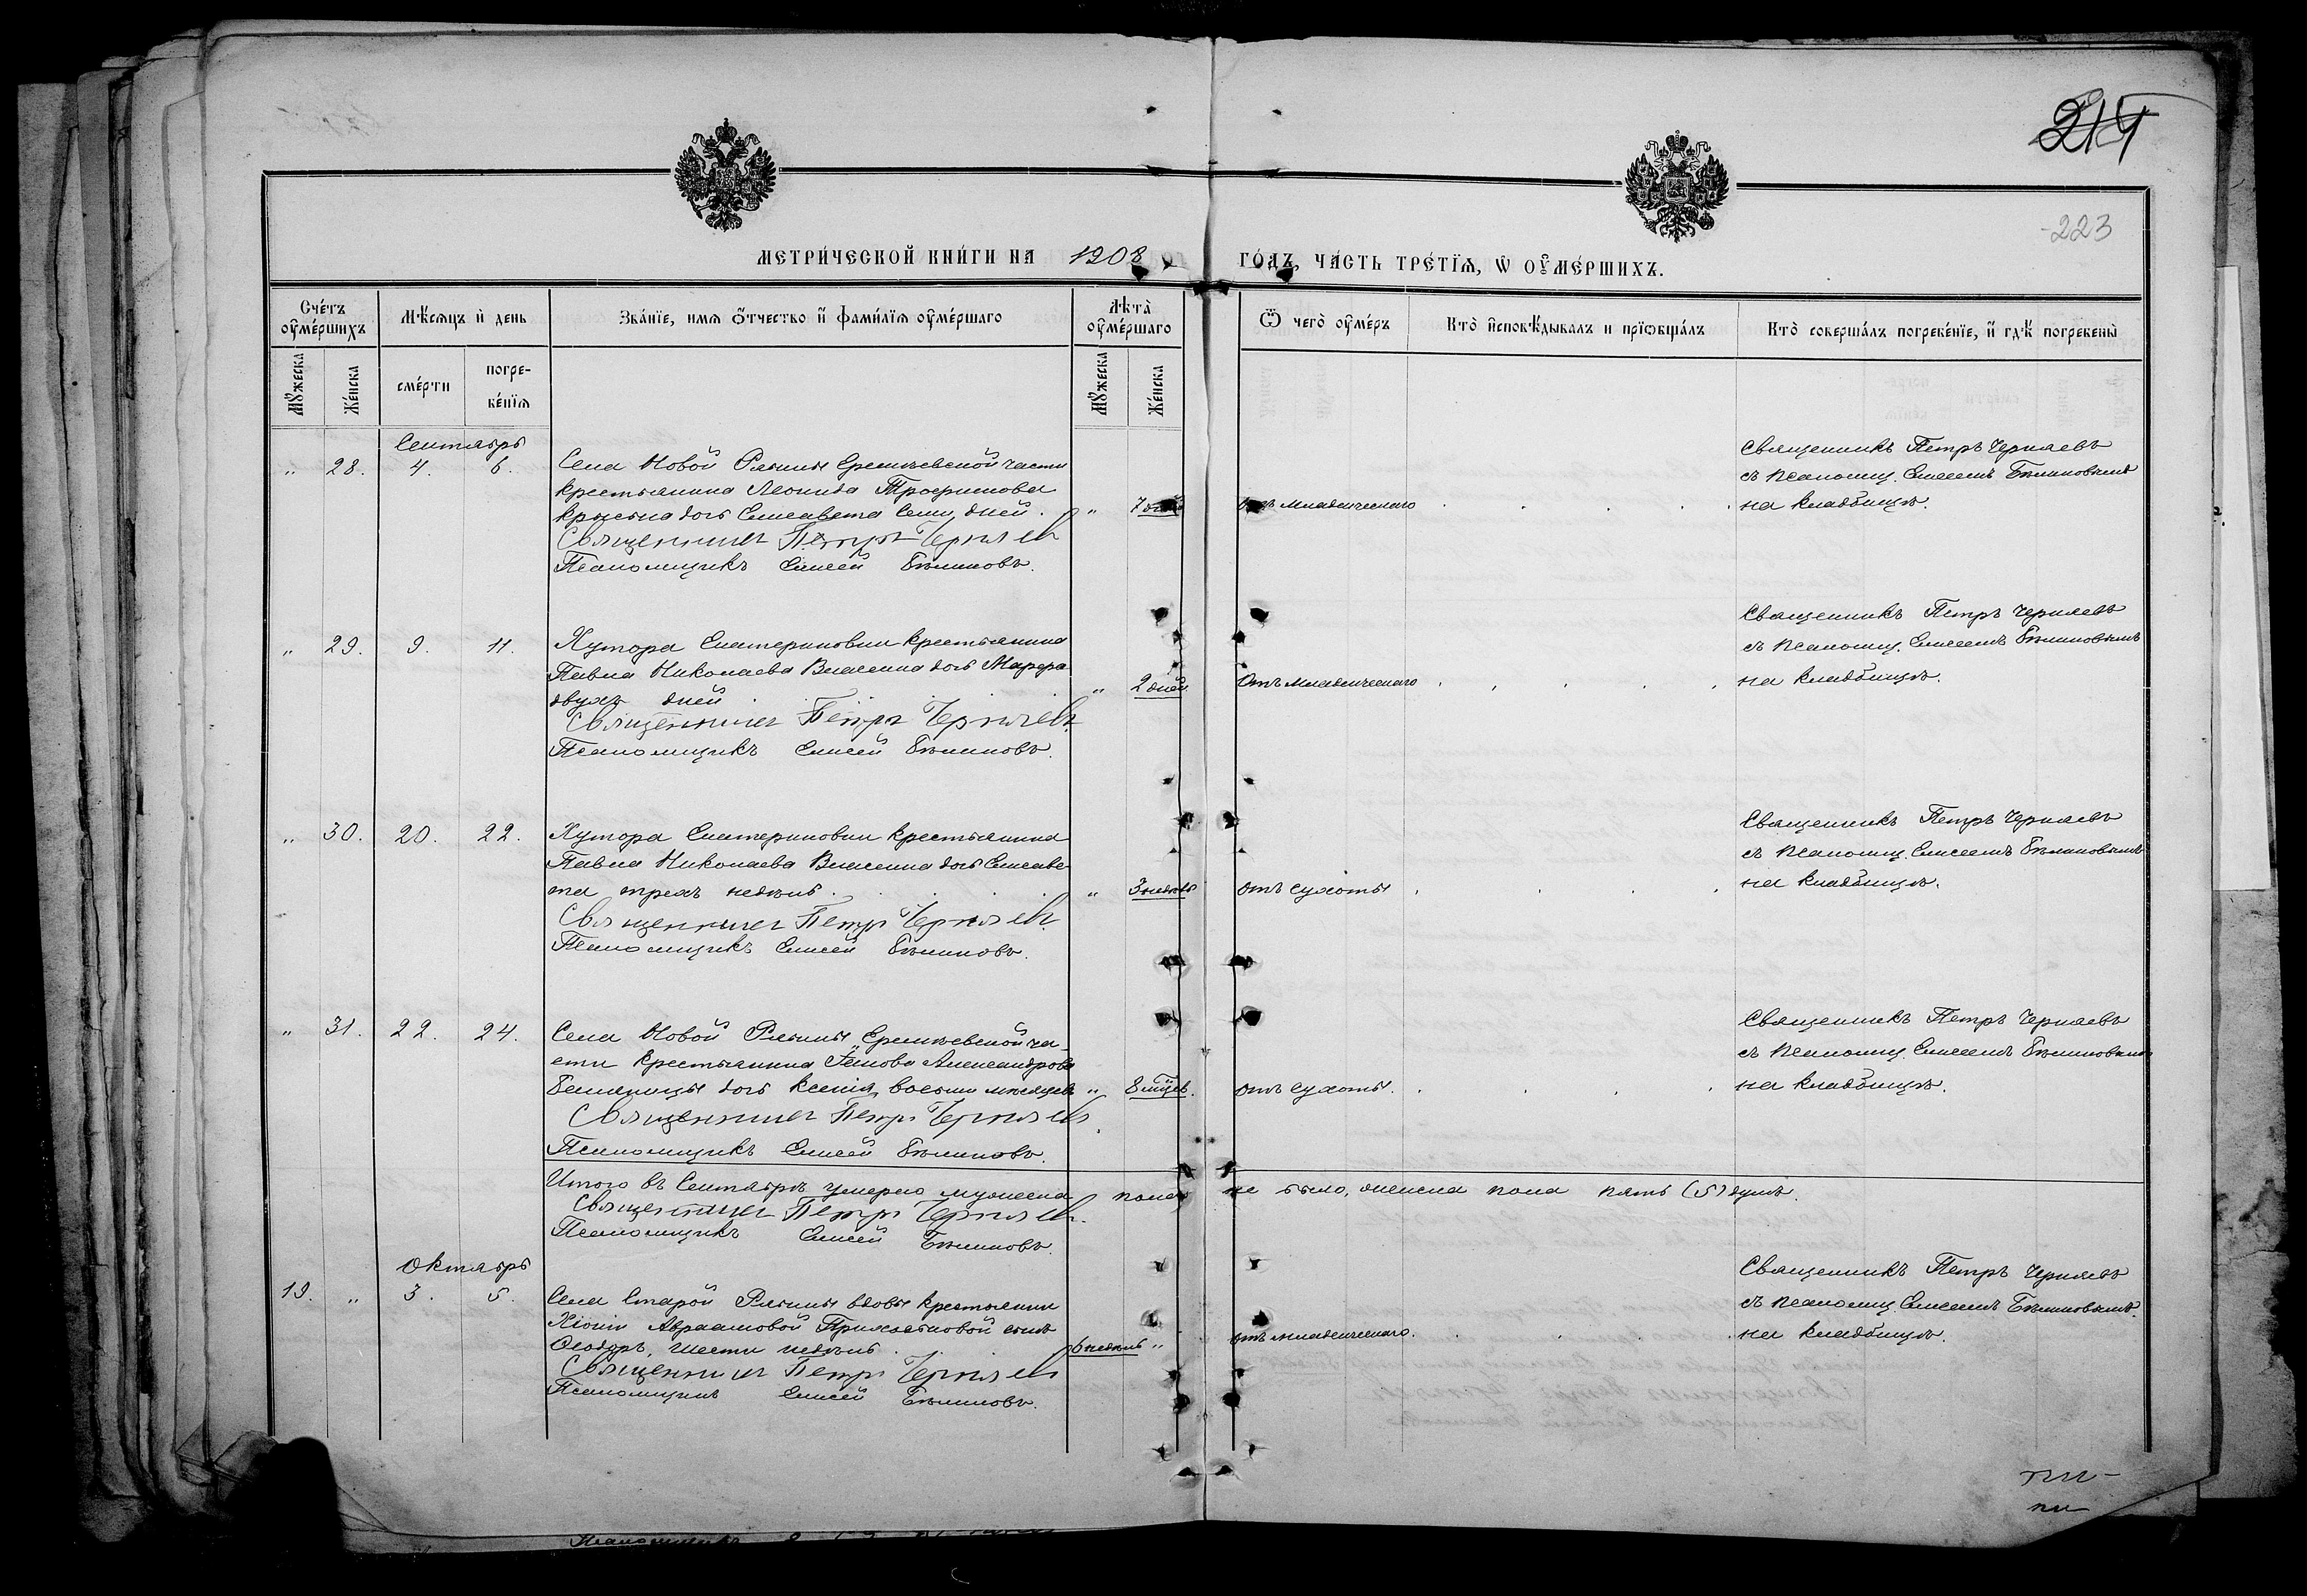 214
223
МЕТРИ́ЧЕСКОЙ КНИ́ГИ НА 1908 ГО́ДЪ, ЧА́СТЬ ТРЕ́ТІѦ, Ѡ ОУ҆МЕ́РШИХЪ.
Сче́тъ оу҆ме́ршихъ
Мѣ́сѧцъ и҆ день
Зва́нїе, имѧ ѻ҆́тчество и҆ фамилїѧ оу҆ме́ршаго
Лѣ́та оу҆ме́ршаго
Ѿ чегѡ̀ оу҆ме́ръ
Кто̀ и҆сповѣ́дывалъ и прїѡбща́лъ
Кто̀ соверша́лъ погребе́нїе, и҆ гдѣ̀ погребены̀
Мꙋ́жеска
Же́нска
сме́рти
погре-
бе́нїѧ
Мꙋ́жеска
Же́нска
Сентябрь
„ 28. 4. 6. Села Новой Рябины Еремѣевской части
крестьянина Леонида Трофимова
дочь Елисавета семи дней. „ 7 дней
Священникъ Петръ Черняевъ
Псаломщикъ Елисей Бѣлиновъ.
отъ младенческаго
Священникъ Петръ Черняевъ
съ псаломщ. Елисеемъ Бѣлиновымъ
на кладбищѣ.
„ 29. 9. 11. Хутора Екатериновки крестьянина
Павла Николаева Власенка дочь Марфа
двухъ дней „ 2 дней
Священникъ Петръ Черняевъ
Псаломщикъ Елисей Бѣлиновъ.
Отъ младенческаго
Священникъ Петръ Черняевъ
съ псаломщ. Елисеемъ Бѣлиновымъ
на кладбищѣ.
„ 30. 20. 22. Хутора Екатериновки крестьянина
Павла Николаева Власенка дочь Елисаве-
та трехъ недѣль. „ 3 недѣль
Священникъ Петръ Черняевъ.
Псаломщикъ Елисей Бѣлиновъ.
отъ сухоты
Священникъ Петръ Черняевъ
съ псаломщ. Елисеемъ Бѣлиновымъ
на кладбищѣ.
„ 31. 22. 24. Села Новой Рябины Еремѣевской ча-
сти крестьянина Іакова Александрова
дочь Ксенія, восьми мѣсяцевъ „ 8 мѣ̃цевъ.
Священникъ Петръ Черняевъ.
Псаломщикъ Елисей Бѣлиновъ.
отъ сухоты.
Священникъ Петръ Черняевъ
съ псаломщ. Елисеемъ Бѣлиновымъ
на кладбищѣ.
Итого въ Сентябрѣ умерло мужеска пола не было, женска пола пять (5) душъ.
Священникъ Петръ Черняевъ.
Псаломщикъ Елисей Бѣлиновъ.
Октябрь
19. „ 3. 5. Села Старой Рябины вдовы крестьянки
Хіоніи Авраамовой сынъ
Ѳеодоръ, шести недѣль. 6 недѣль „
Священникъ Петръ Черняевъ
Псаломщикъ Елисей Бѣлиновъ.
отъ младенческаго.
Священникъ Петръ Черняевъ
съ псаломщ. Елисеемъ Бѣлиновымъ.
на кладбищѣ.
Псаломщикъ